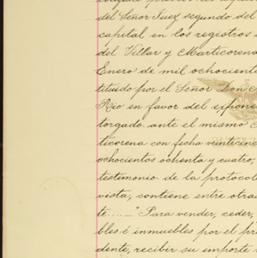 del Señor Juez segundo del
capital en los registros
del Villar y Marticorena
Enero de mil ochociente
tituido por el Señor Don
Rio en favor del expone
torgado ante el mismo
ticorena con fecha veintcin
ochocientos ochenta y cuatro,
testimonio de la protocol
vista, contiene entre otra
te...." Para vender, ceder,
bles é inmuebles por el pr
dente, recibir su importe